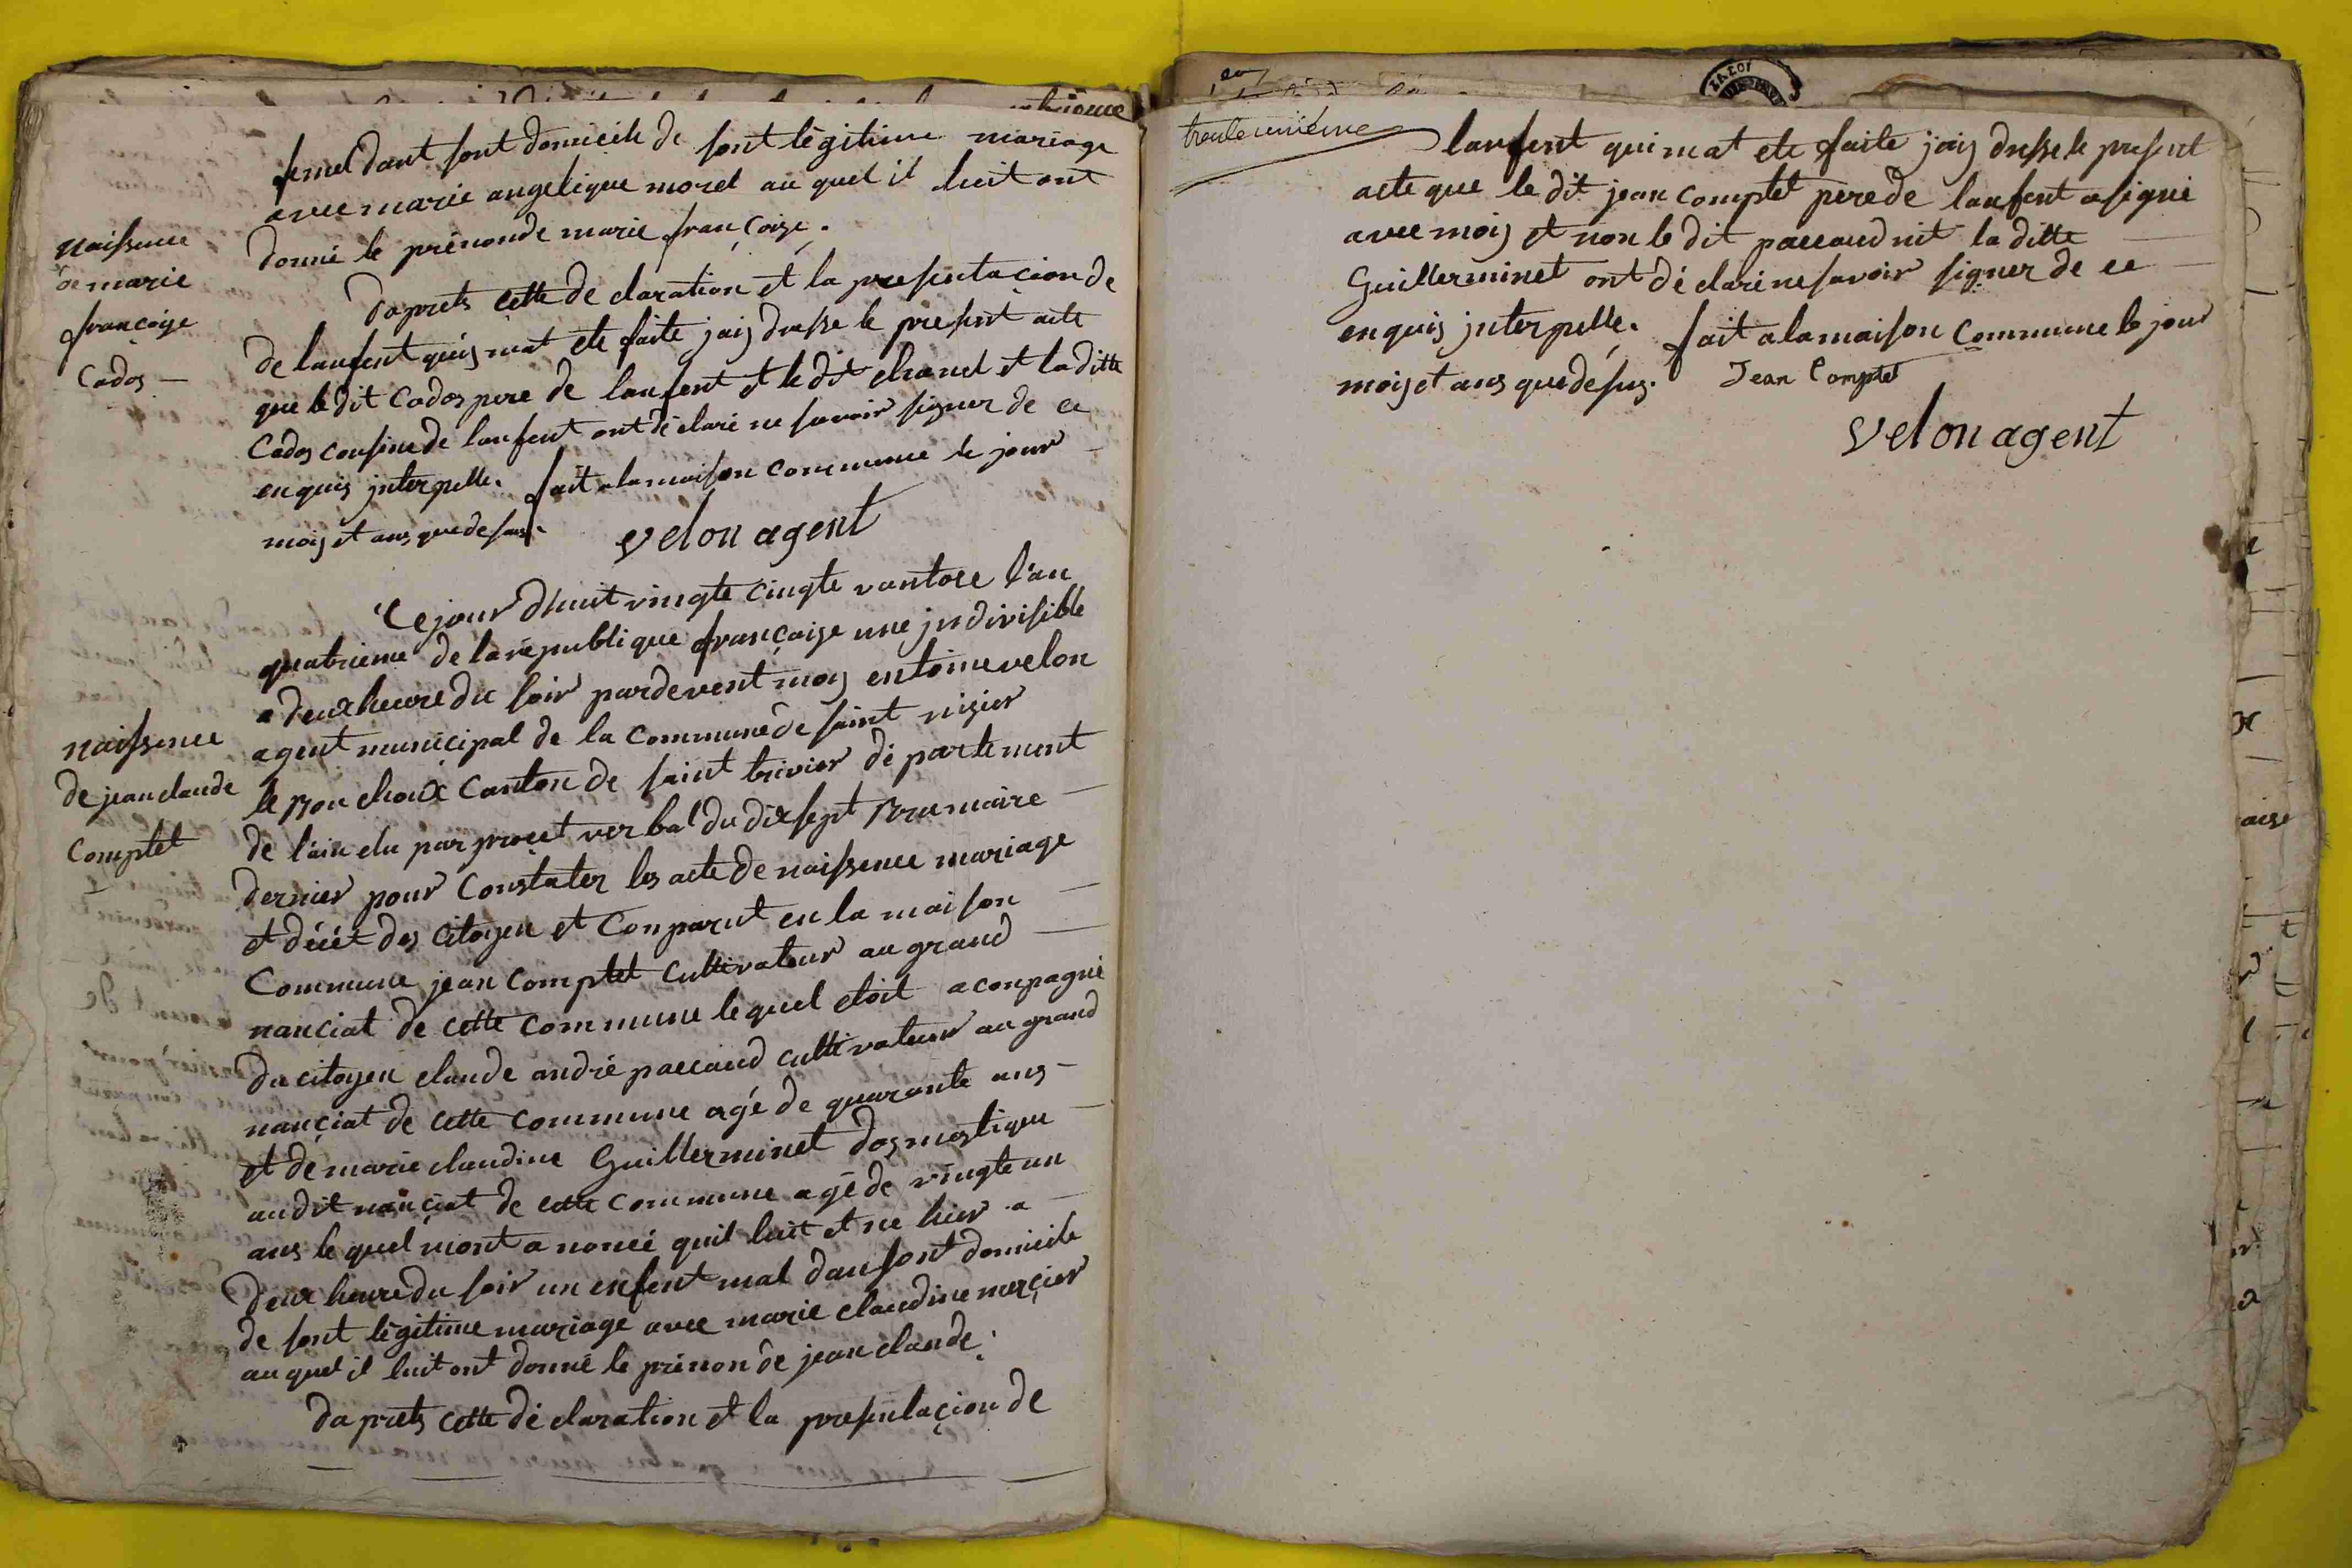 femel dant sont domicile de sont légitime mariage
avec marie angelique morel au quel il luit ont
donné le prénon de marie françoise.
naissence
de marie
françoise
Cados —
daprets cette declaration et la presentacion de
de lanfent quis mat ete faite jais dresse le present acte
que le dit Cados pere de lanfent et le dit chanel et la ditte
Cados cousine de lanfent ont déclaré ne savoir signer de ce
enquis jnterpelle. fait a la maison commune le jour
mois et ans que desus.
velon agent
Cejour dhuit vingte cingte vantose l'an
quatrieme de la république françoise une jndivisible
a deux heure du soir pardevent moy entoine velon
agent municipal de la commune de saint nisier
le Bouchoux Canton de saint trivier département
de l'ain elu par procet verbal du dix sept Brumaire
dernier pour Constater les acte de naissence mariage
et décét des citoyen et Conparut en la maison
naissence
de jean claude
Comptet
Commune jean Comptet Cultivateur au grand
nanciat de cette commune le quel etoit aconpagné
du citoyen claude andré paccaud cultivateur au grand
nançiat de cette commune agé de quarante ans —
et de marie claudine Guillerminet dosmestique
au dit nançiat de cette commune agé de vingte un
ans le quel mont a noncé quil luit et ne hier a
deux heure du soir un enfent mal dan sont domicile
de sont légitime mariage avec marie claudine mercier
au quel il luit ont donné le prénon de jean claude.
daprets cette déclaration et la presentaçion de
trenteunième
lanfent qui mat ete faite jais dresse le present
acte que le dit jean Comptet pere de lanfent a signé
avec mois et non le dit paccaud nit la ditte
Guillerminet ont déclaré ne savoir signer de ce
enquis jnterpelle. fait a la maison Commune le jour
mois et ans que desus.
Jean Comptet
velon agent
LA LOI